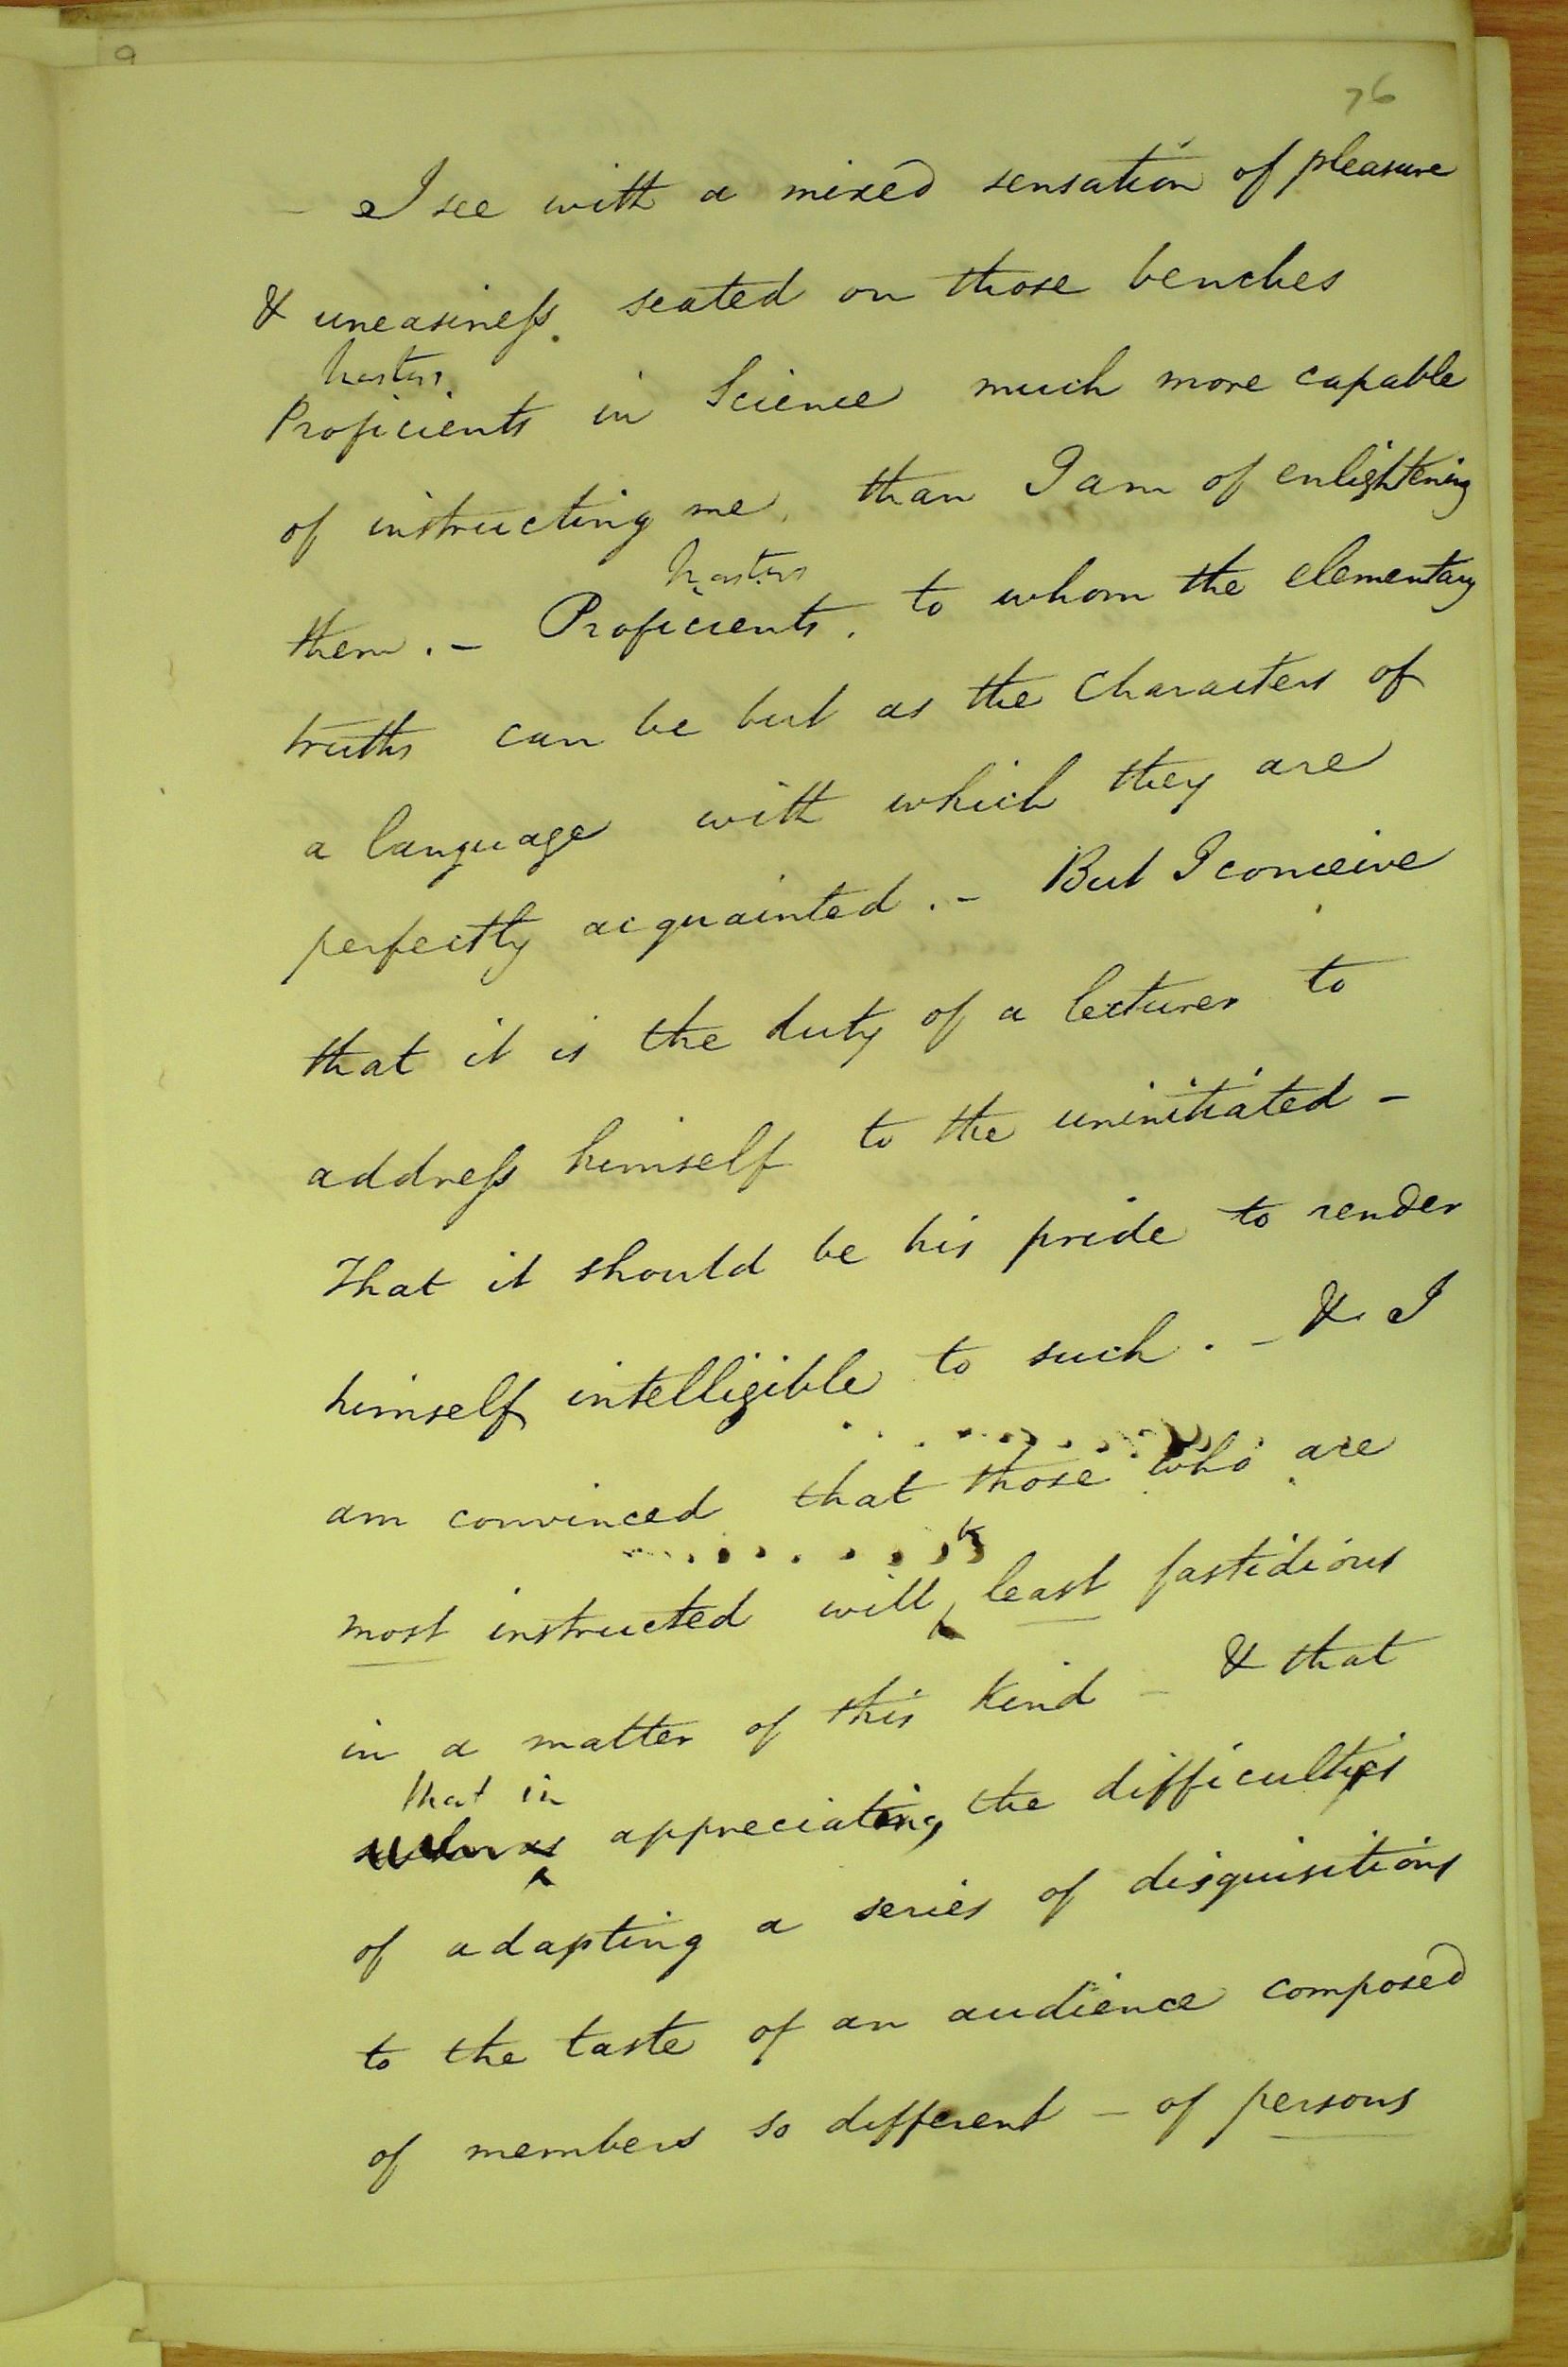 9
76
- I see with a mixed sensation of pleasure
& uneasiness. seated on those benches
Masters
Proficients in Science much more capable
of instructing me, than I am of enlightening
Masters
them. - Proficients. to whom the elementary
truths can be but as the characters of
a language with which they are
perfectly acquainted. - But I conceive
that it is the duty of a lecturer to
address himself to the uninitiated -
That it should be his pride to render
himself intelligible to such. - & I
am convinced that those who are
most instructed will least fastidious
in a matter of this kind - & that
that in
appreciating, the difficulties
of adapting a series of disquisitions
to the taste of an audience composed
of members so different - of persons